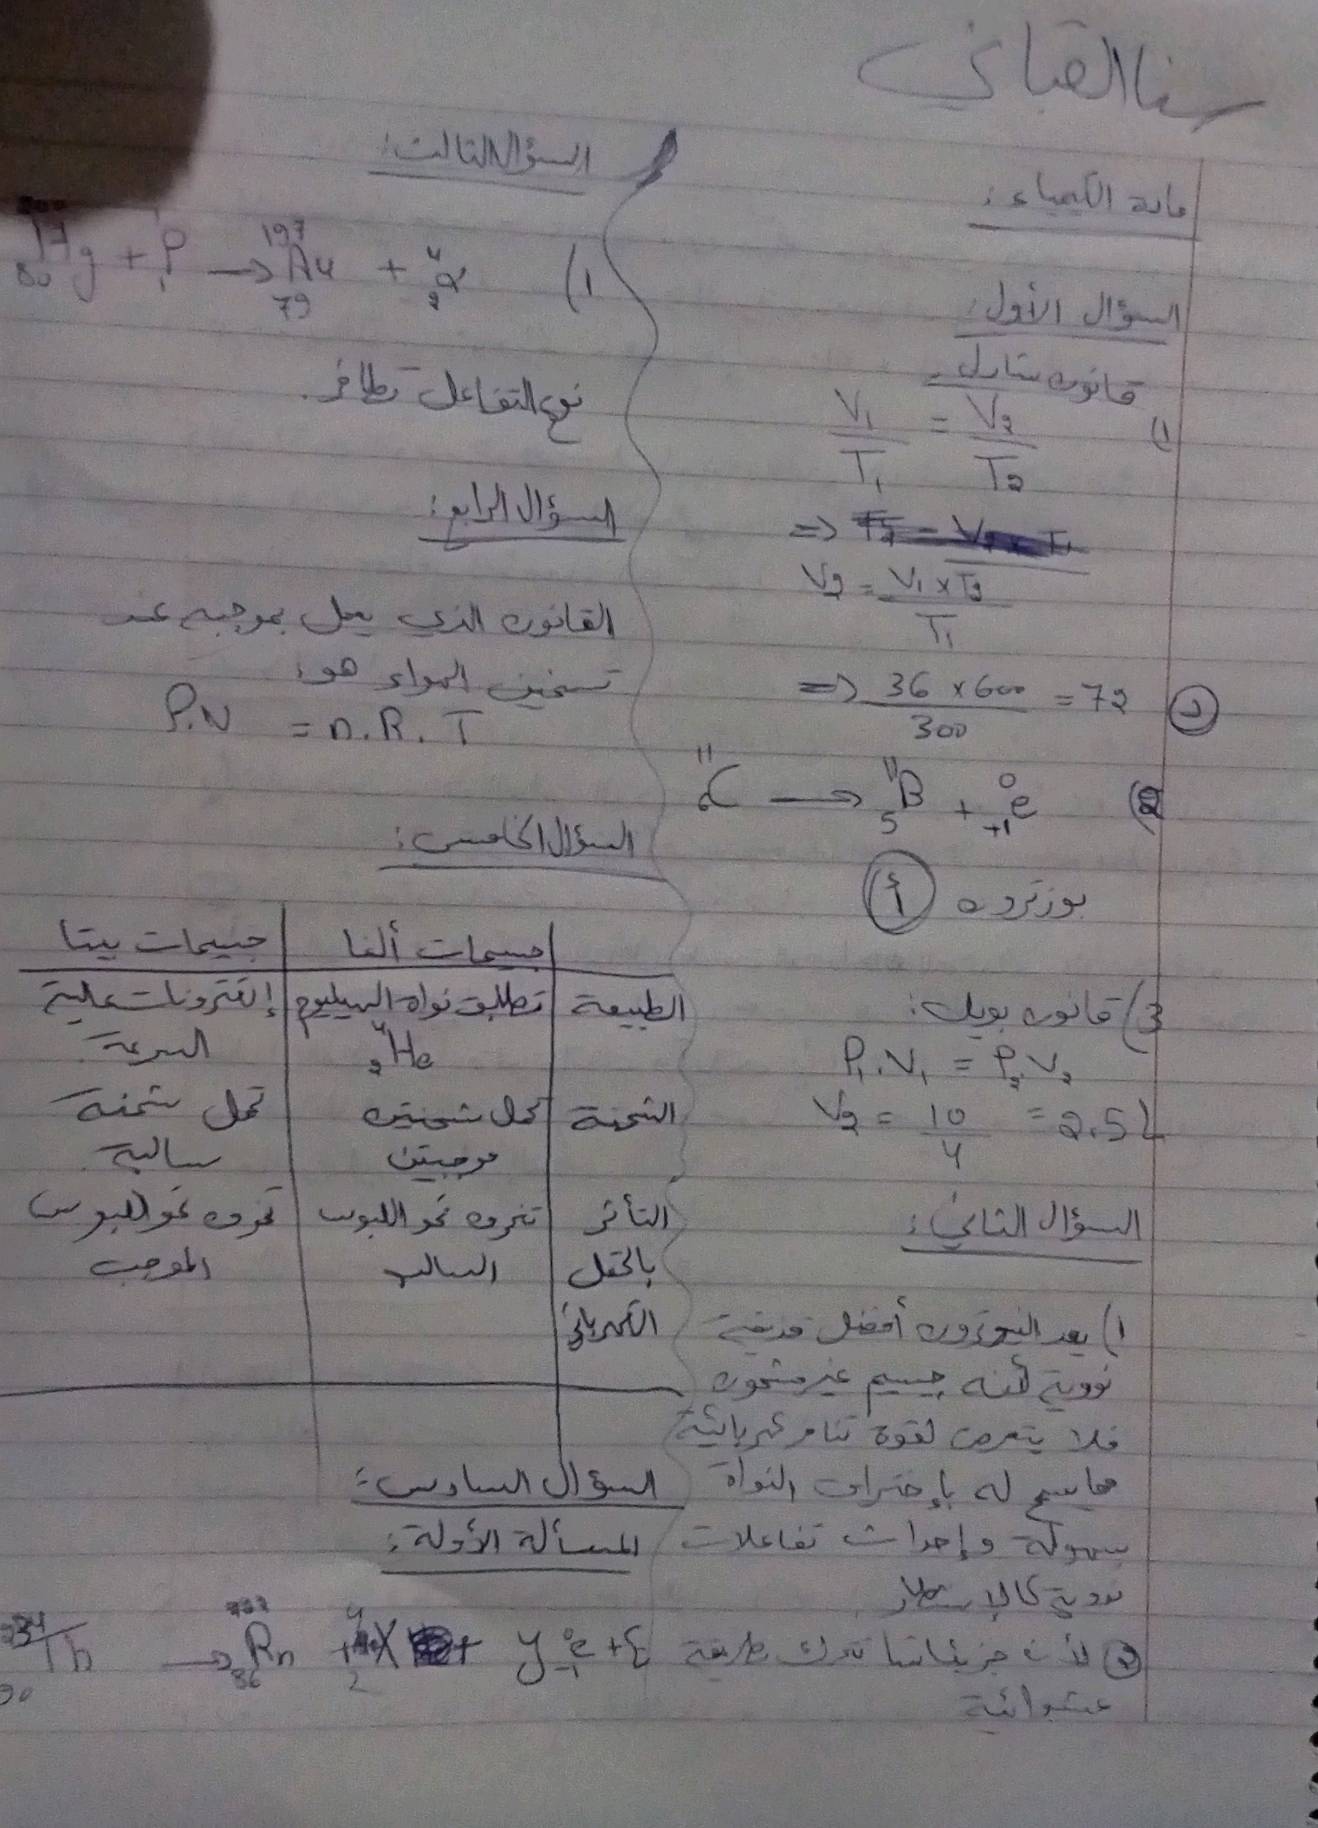 سنا القباني
مادة الكيمياء:
السؤال الأول:
قانون شارل
1) V₁/T₁ = V₂/T₂
V₂ = V₁ × T₂ / T₁
=> 36 × 600 / 300 = 72
2) ¹¹₆C → ¹¹₅B + ⁰₊₁e
بوزترون أ
3) قانون بويل:
P₁.V₁ = P₂.V₂
V₂ = 10/4 = 2.5 L
السؤال الثاني:
1) يعد النيوترون أفضل قذيفة
نووية لأنه جسيم غير مشحون
فلا يتعرض لقوة تنافر كهربائية
مما يسمح له بإختراق النواة
بسهولة وإحداث تفاعلات
نووية كالإنشطار
2 لأن جزيئاتها تتحرك بطريقة
عشوائية
السؤال الثالث:
1) ₈₀Hg + ¹₁P → ¹⁹⁷₇₉Au + ⁴₂α
نوع التفاعل تطافر.
السؤال الرابع:
القانون الذي يعمل بموجبه عند
تسخين الهواء هو:
P.V = n.R.T
السؤال الخامس:
جسيمات ألفا | جسيمات بيتا
الطبيعة | تطابق نواة الهيليوم | إلكترونات عالية
⁴₂He | السرعة
الشحنة | تحمل شحنتين | تحمل شحنة
موجبتين | سالبة
التأثر | تنحرف نحو اللبوس | تنحرف نحو اللبوس
بالحقل | السالب | الموجب
الكهربائي
السؤال السادس:
المسألة الأولة:
²³⁴₉₀Th → ₈₆Rn + X ⁴₂ + y ⁰₋₁e + E